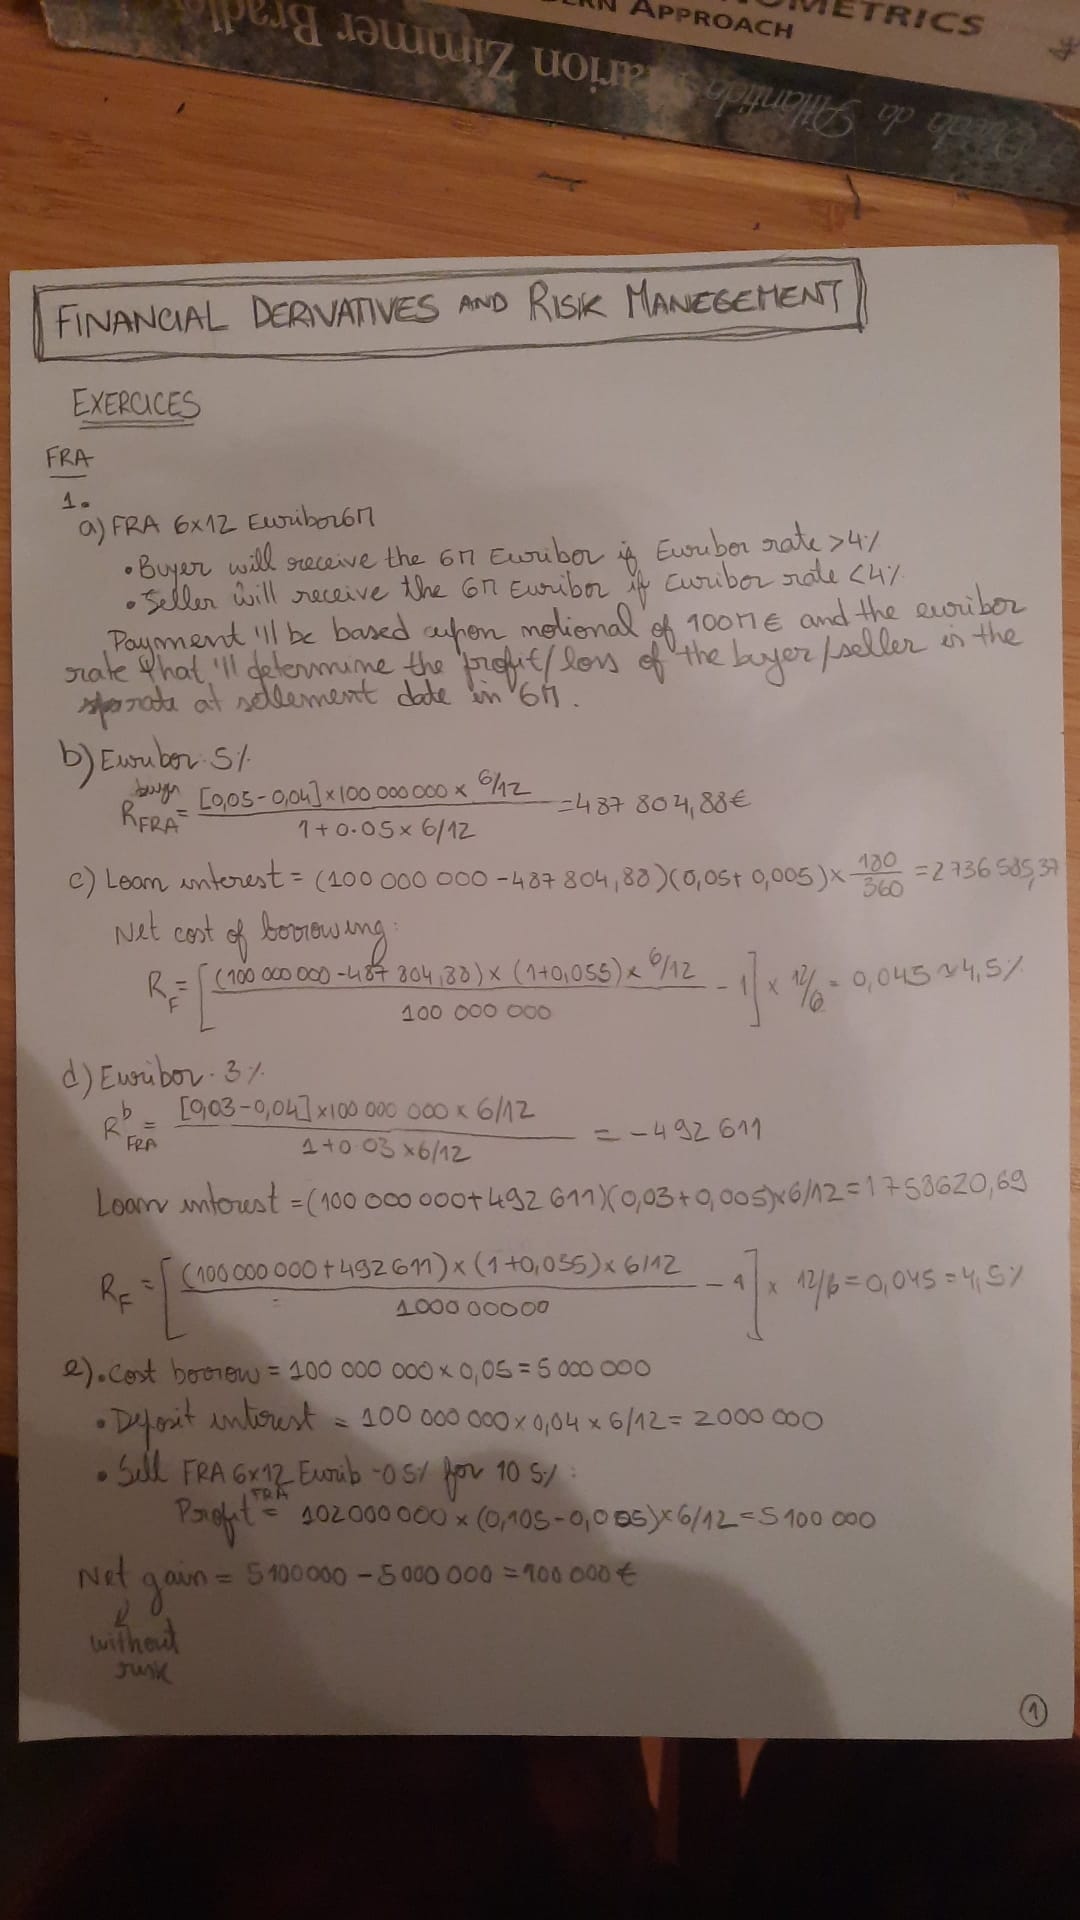 METRICS
APPROACH
Marion Zimmer Bradley
Queda da Atlântida
FINANCIAL DERIVATIVES AND RISK MANEGEMENT
EXERCICES
FRA
1.
a) FRA 6x12 Euribor6M
• Buyer will receive the 6M Euribor if Euribor rate >4%
• Seller will receive the 6M Euribor if Euribor rate <4%
Payment 'll be based upon notional of 100M€ and the euribor
rate that 'll determine the profit/loss of the buyer/seller in the
at settlement date in 6M.
b) Euribor 5%
R_FRA^buyer = [0,05-0,04]x100 000 000 x 6/12 / 1+0.05x 6/12 = 487 804,88€
c) Loan interest = (100 000 000 -487 804,88)(0,05+ 0,005)x 180/360 = 2 736 585,37
Net cost of borrowing:
R_F = [(100 000 000 -487 804,88)x (1+0,055)x 6/12 / 100 000 000 - 1] x 12/6 = 0,045 ≈ 4,5%
d) Euribor 3%
R_FRA^b = [0,03-0,04]x100 000 000 x 6/12 / 1+0.03 x6/12 = -492 611
Loan interest =(100 000 000+492 611)(0,03+0,005)x6/12=1758620,69
R_F = [(100 000 000+492 611)x(1+0,035)x 6/12 / 1000 00000 - 1] x 12/6=0,045=4,5%
e) • Cost borrow = 100 000 000x0,05=5 000 000
• Deposit interest = 100 000 000x0,04 x 6/12= 2000 000
• Sell FRA 6x12 Eurib -0 5% for 10 5% :
Profit^FRA = 102000 000 x (0,105-0,005)x6/12=5 100 000
Net gain = 5100000 -5000 000 =100 000€
without
risk
1